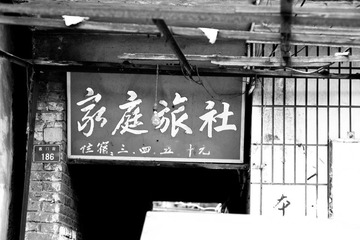 家庭旅社
住宿三、四、五十元
186